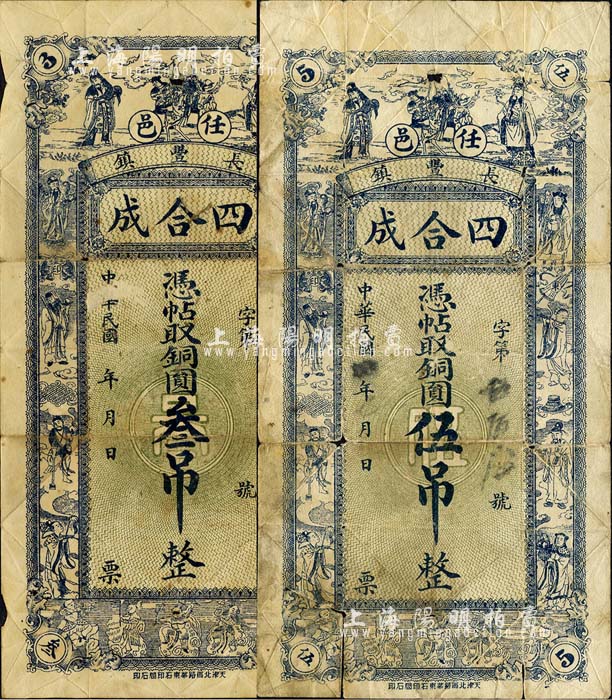 3
任邑
長豐鎮
四合成
字第
號
憑帖取銅圓叁吊整
中華民國 年 月 日
票
5
伍
任邑
長豐鎮
四合成
字第
號
憑帖取銅圓伍吊整
中華民國 年 月 日
票
伍
5
天津北馬路華東石印局石印
天津北馬路華東石印局石印
上海陽明拍賣
www.yangmingauction.com